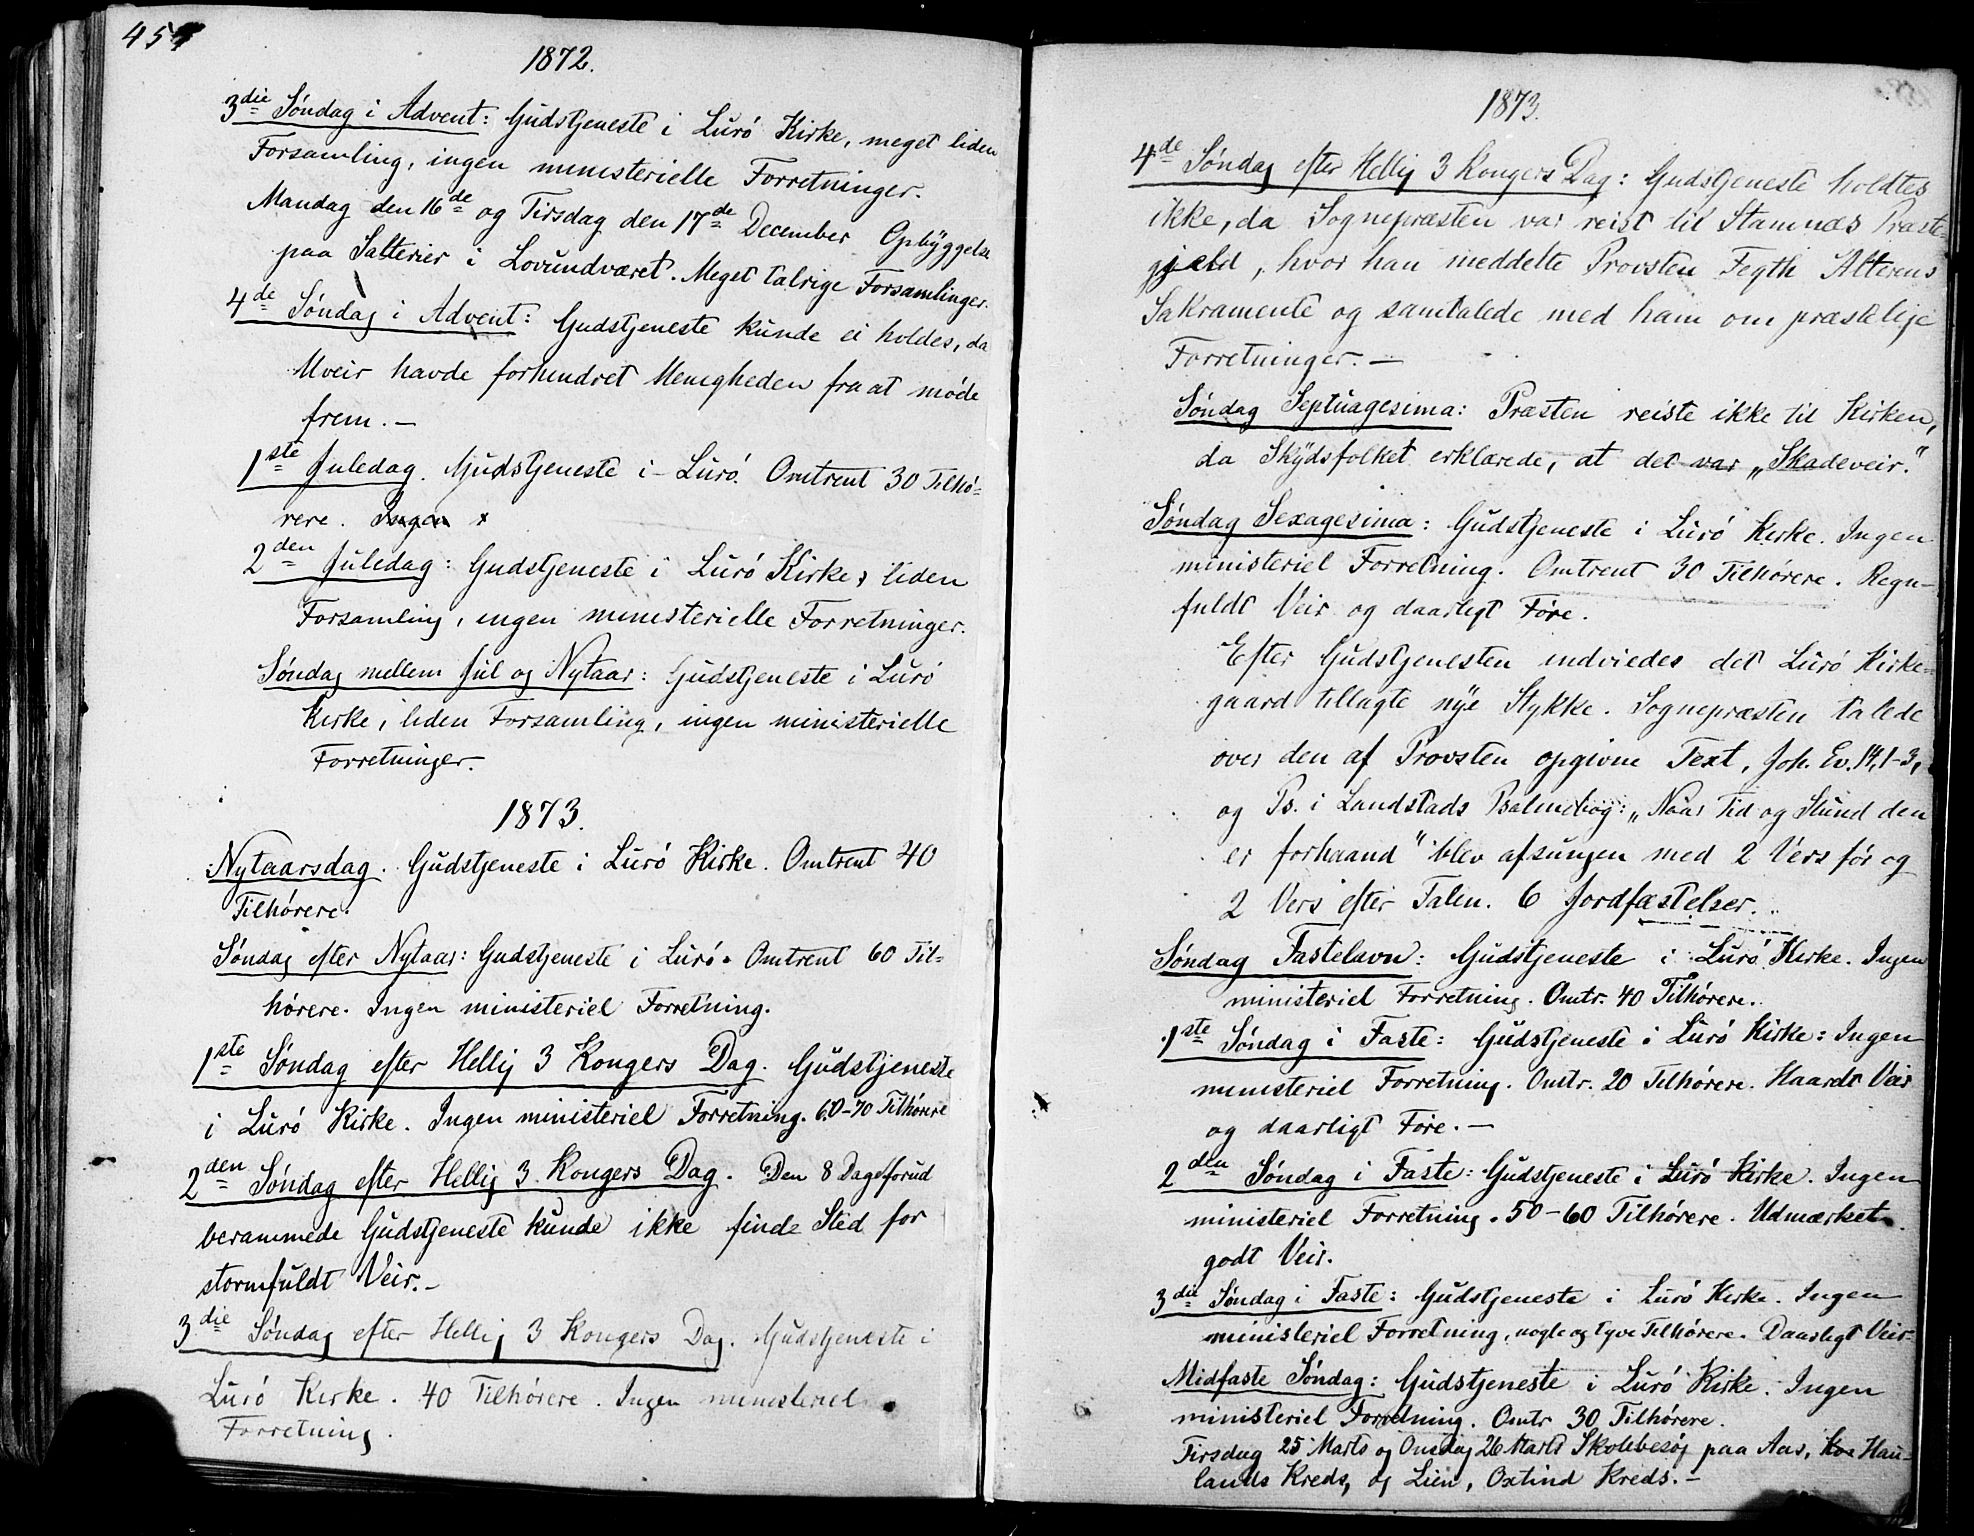 1872.
3die Søndag i Advent: Gudstjeneste i Lurö Kirke, meget liden
Forsamling, ingen ministerielle Forretninger.
Mandag den 16de og Tirsdag den 17de December Opbyggelse
paa Salterier i Lovundværet. Meget talrige Forsamlinger.
4de Søndag i Advent: Gudstjeneste kunde ei holdes, da
Uveir havde forhindret Menigheden fra at møde
frem. —
1ste Juledag. Gudstjeneste i Lurö. Omtrent 30 Tilhø-
rere. Ingen
2den Juledag: Gudstjeneste i Lurö Kirke, liden
Forsamling, ingen ministerielle Forretninger.
Søndag mellem Jul og Nytaar: Gudstjeneste i Lurö
Kirke, liden Forsamling, ingen ministerielle
Forretninger.
1873.
Nytaarsdag. Gudstjeneste i Lurö Kirke. Omtrent 40
Tilhørere.
Søndag efter Nytaar: Gudstjeneste i Lurö. Omtrent 60 Til-
hørere. Ingen ministeriel Forretning.
1ste Søndag efter Hellig 3 Kongers Dag. Gudstjeneste
i Lurö Kirke. Ingen ministeriel Forretning. 60-70 Tilhørere
2den Søndag efter Hellig 3 Kongers Dag. Den 8 Dage forud
berammede Gudstjeneste kunde ikke finde Sted for
stormfuldt Veir. —
3die Søndag efter Hellig 3 Kongers Dag. Gudstjeneste i
Lurö Kirke. 40 Tilhørere. Ingen ministeriel
Forretning.
1873.
4de Søndag efter Hellig 3 Kongers Dag: Gudstjeneste holdtes
ikke, da Sognepræsten var reist til Stamnæs Præste-
gjæld, hvor han meddelte Provsten Fegth Alterens
Sakramente og samtalede med ham om præstelige
Forretninger. —
Søndag Septuagesima: Præsten reiste ikke til Kirken,
da Skydsfolket erklærede, at det var „Skadeveir."
Søndag Sexagesima: Gudstjeneste i Lurö Kirke. Ingen
ministeriel Forretning. Omtrent 30 Tilhørere. Regn-
fuldt Veir og daarligt Føre.
Efter Gudstjenesten indviedes det Lurö Kirke-
gaard tillagte nye Stykke. Sognepræsten talede
over den af Provsten opgivne Text, Joh. Ev. 14, 1-3,
og Ps. i Landstads Psalmebog: „Naar Tid og Stund den
er forhaand" blev afsungen med 2 Vers før og
2 Vers efter Talen. 6 Jordfæstelser.
Søndag Fastelavn: Gudstjeneste i Lurö Kirke. Ingen
ministeriel Forretning. Omtr. 40 Tilhørere.
1ste Søndag i Faste: Gudstjeneste i Lurö Kirke: Ingen
ministeriel Forretning. Omtr. 20 Tilhørere. Haardt Veir
og daarligt Føre. —
2den Søndag i Faste: Gudstjeneste i Lurö Kirke. Ingen
ministeriel Forretning. 50-60 Tilhørere. Udmærket
godt Veir.
3die Søndag i Faste: Gudstjeneste i Lurö Kirke. Ingen
ministeriel Forretning, nogle og tyve Tilhørere. Daarligt Veir.
Midfaste Søndag: Gudstjeneste i Lurö Kirke. Ingen
ministeriel Forretning. Omtr 30 Tilhørere.
Tirsdag 25 Marts og Onsdag 26 Marts Skolebesøg paa Aas, Hau-
lands Kreds, og Lien, Oxtind Kreds. —